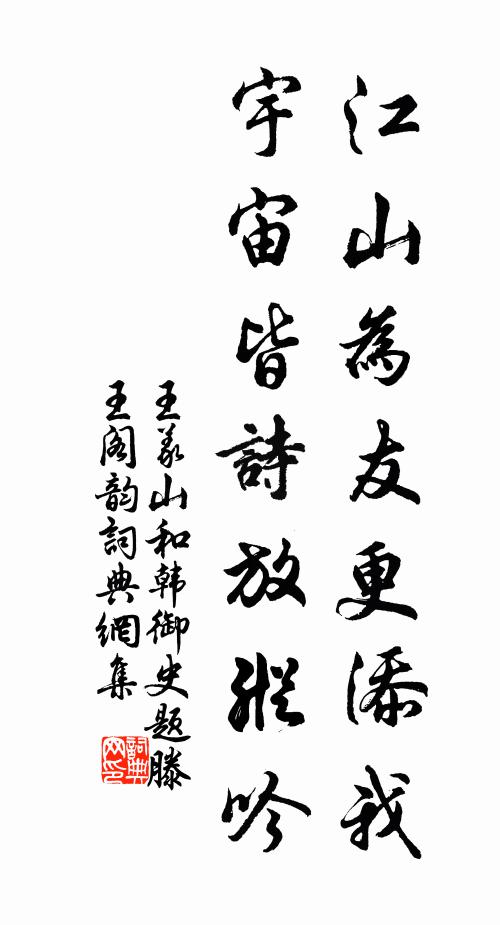 江山為友更添我
宇宙皆詩放縱吟
王義山和韩御史題滕
王阁韵詞典網集
詞典
网印